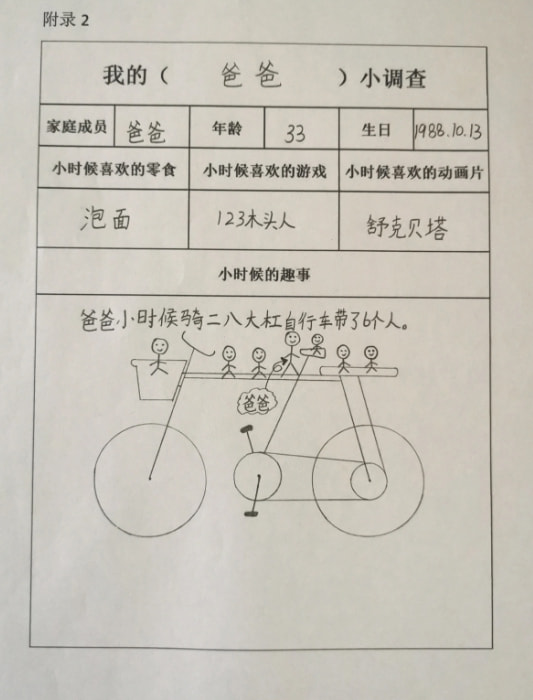 附录2
我的（ 爸爸 ）小调查
家庭成员 爸爸 年龄 33 生日 1988.10.13
小时候喜欢的零食 小时候喜欢的游戏 小时候喜欢的动画片
泡面 123木头人 舒克贝塔
小时候的趣事
爸爸小时候骑二八大杠自行车带了6个人。
爸爸